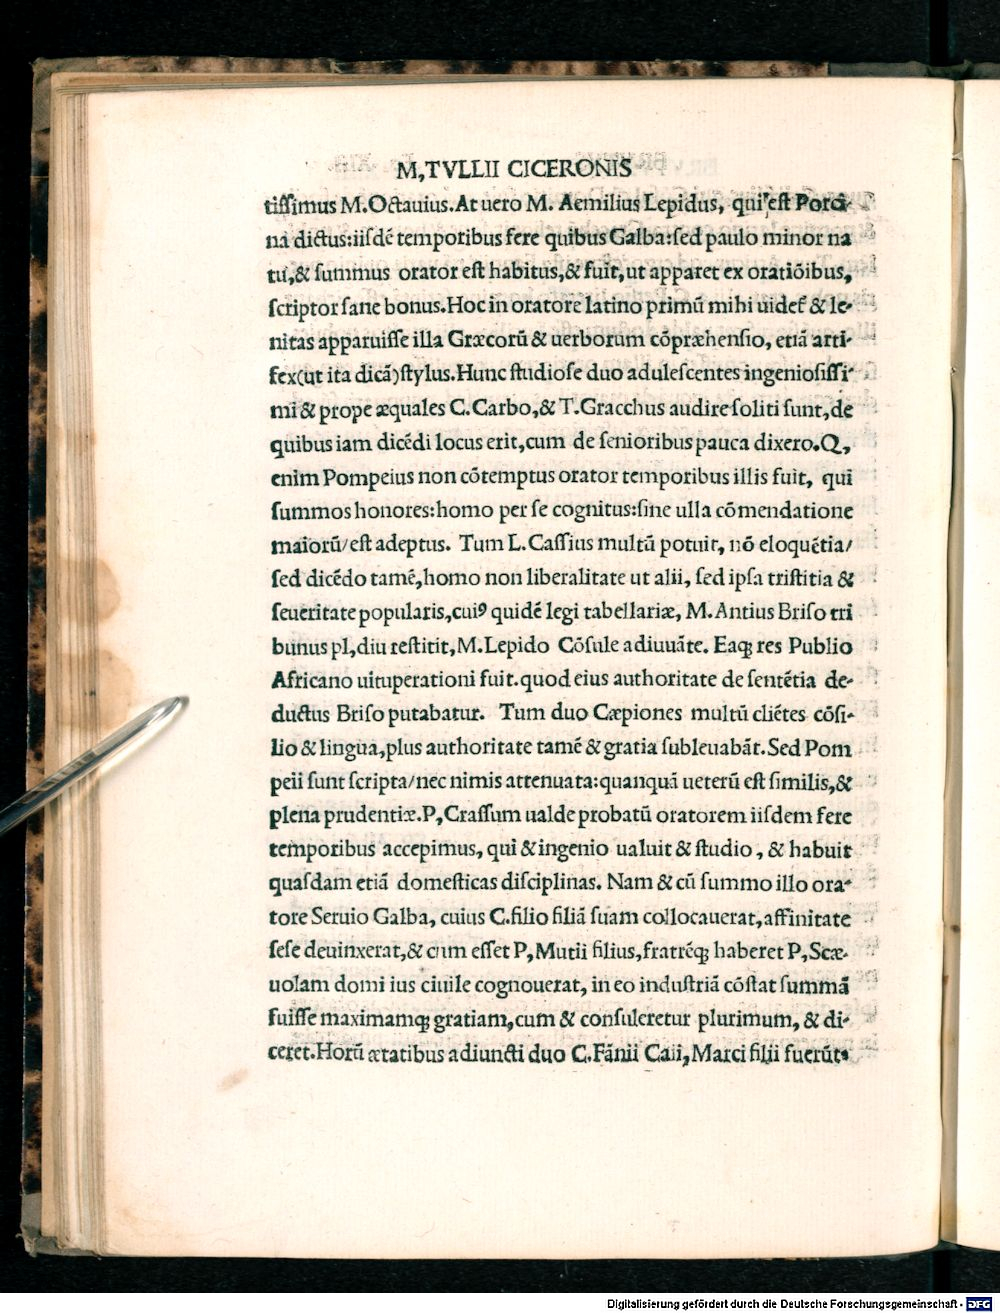 M,TVLLII CICERONIS
tissimus M.Octauius.At uero M. Aemilius Lepidus, qui est Porci-
na dictus:iisdē temporibus fere quibus Galba:sed paulo minor na
tu,& summus orator est habitus,& fuit,ut apparet ex oratiōibus,
scriptor sane bonus.Hoc in oratore latino primū mihi uidet & le-
nitas apparuisse illa Græcorū & uerborum cōpræhensio, etiā arti-
fex(ut ita dicā)stylus.Hunc studiose duo adulescentes ingeniosissi-
mi & prope æquales C.Carbo,& T.Gracchus audire soliti sunt,de
quibus iam dicēdi locus erit,cum de senioribus pauca dixero.Q,
enim Pompeius non cōtemptus orator temporibus illis fuit, qui
summos honores:homo per se cognitus:sine ulla cōmendatione
maiorū/est adeptus. Tum L.Cassius multū potuit, nō eloquētia/
sed dicēdo tamē,homo non liberalitate ut alii, sed ipsa tristitia &
seueritate popularis,cuiꝰ quidē legi tabellariæ, M.Antius Briso tri
bunus pl,diu restitit,M.Lepido Cōsule adiuuāte. Eaqꝫ res Publio
Africano uituperationi fuit.quod eius authoritate de sentētia de-
ductus Briso putabatur. Tum duo Cæpiones multū cliētes cōsi-
lio & lingua,plus authoritate tamē & gratia subleuabāt.Sed Pom
peii sunt scripta/nec nimis attenuata:quanquā ueterū est similis,&
plena prudentiæ.P,Crassum ualde probatū oratorem iisdem fere
temporibus accepimus, qui & ingenio ualuit & studio, & habuit
quasdam etiā domesticas disciplinas. Nam & cū summo illo ora-
tore Seruio Galba, cuius C.filio filiā suam collocauerat,affinitate
sese deuinxerat,& cum esset P,Mutii filius,fratrēqꝫ haberet P,Scæ-
uolam domi ius ciuile cognouerat, in eo industriā cōstat summā
fuisse maximamqꝫ gratiam,cum & consuleretur plurimum, & di-
ceret.Horū ætatibus adiuncti duo C.Fānii Caii,Marci filii fuerūt.
Digitalisierung gefördert durch die Deutsche Forschungsgemeinschaft - DFG